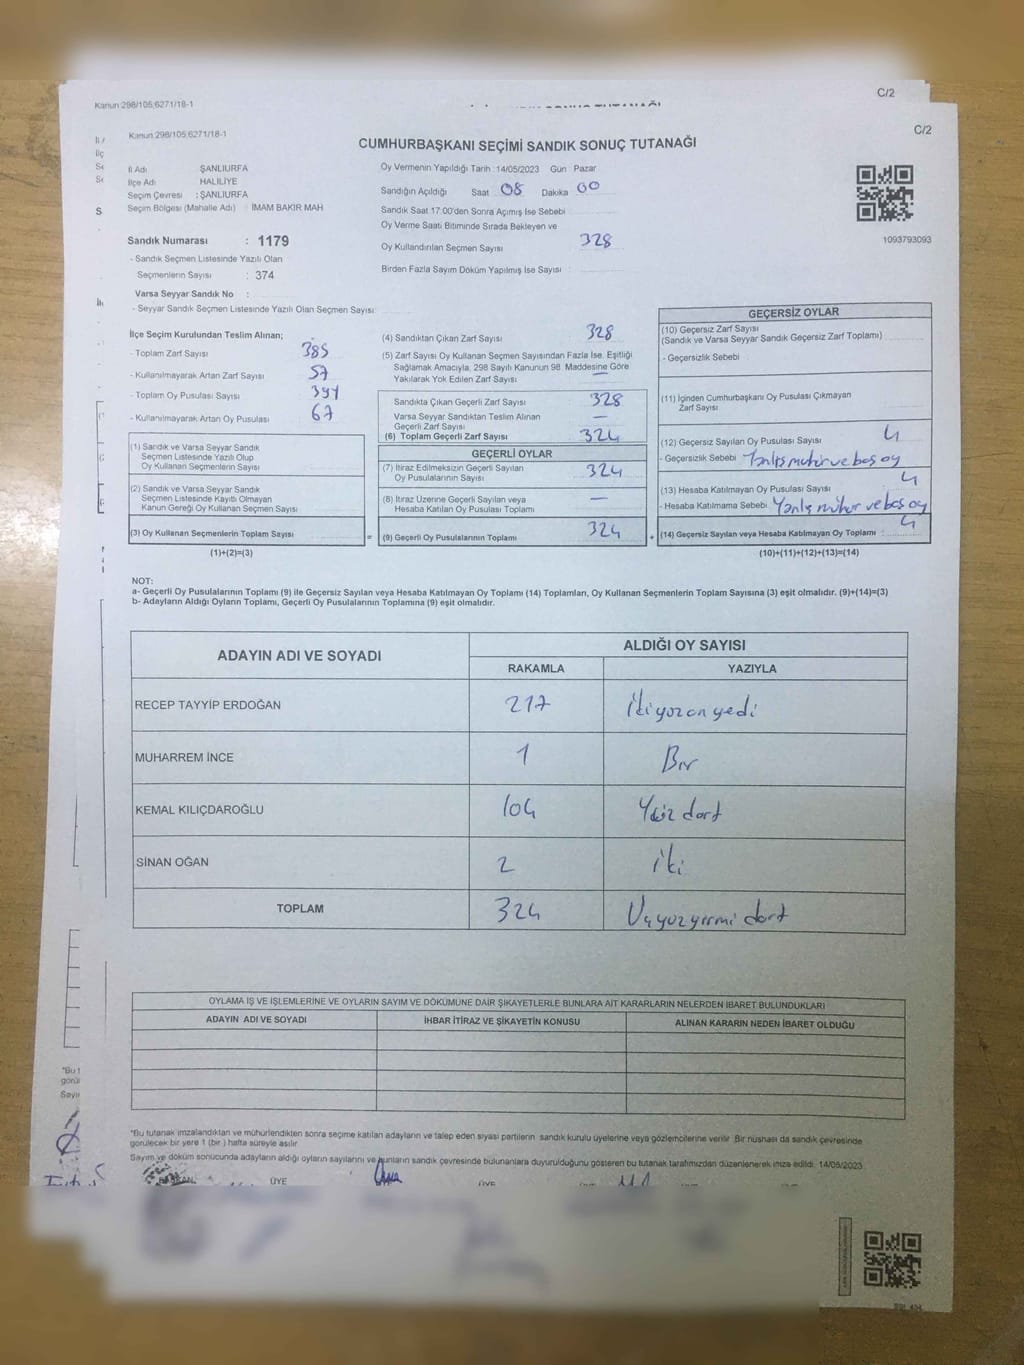 Kanun:298/105;6271/18-1
C/2
Kanun:298/105;6271/18-1
C/2
CUMHURBAŞKANI SEÇİMİ SANDIK SONUÇ TUTANAĞI
İl Adı : ŞANLIURFA
İlçe Adı : HALİLİYE
Seçim Çevresi : ŞANLIURFA
Seçim Bölgesi (Mahalle Adı) : İMAM BAKIR MAH.
Oy Vermenin Yapıldığı Tarih :14/05/2023 Gün : Pazar
Sandığın Açıldığı Saat 08 Dakika 00
Sandık Saat 17.00'den Sonra Açımış İse Sebebi
Oy Verme Saati Bitiminde Sırada Bekleyen ve
Oy Kullandırılan Seçmen Sayısı 328
Birden Fazla Sayım Döküm Yapılmış İse Sayısı :
1093793093
Sandık Numarası : 1179
- Sandık Seçmen Listesinde Yazılı Olan
Seçmenlerin Sayısı : 374
Varsa Seyyar Sandık No :
- Seyyar Sandık Seçmen Listesinde Yazılı Olan Seçmen Sayısı:
İlçe Seçim Kurulundan Teslim Alınan;
- Toplam Zarf Sayısı : 385
- Kullanılmayarak Artan Zarf Sayısı : 57
- Toplam Oy Pusulası Sayısı :
- Kullanılmayarak Artan Oy Pusulası : 67
(1) Sandık ve Varsa Seyyar Sandık
Seçmen Listesinde Yazılı Olup
Oy Kullanan Seçmenlerin Sayısı
(2) Sandık ve Varsa Seyyar Sandık
Seçmen Listesinde Kayıtlı Olmayan
Kanun Gereği Oy Kullanan Seçmen Sayısı
(3) Oy Kullanan Seçmenlerin Toplam Sayısı
(1)+(2)=(3)
(4) Sandıktan Çıkan Zarf Sayısı : 328
(5) Zarf Sayısı Oy Kullanan Seçmen Sayısından Fazla İse, Eşitliği
Sağlamak Amacıyla, 298 Sayılı Kanunun 98. Maddesine Göre
Yakılarak Yok Edilen Zarf Sayısı : —
Sandıkta Çıkan Geçerli Zarf Sayısı : 328
Varsa Seyyar Sandıktan Teslim Alınan
Geçerli Zarf Sayısı : —
(6) Toplam Geçerli Zarf Sayısı : 324
GEÇERLİ OYLAR
(7) İtiraz Edilmeksizin Geçerli Sayılan
Oy Pusulalarının Sayısı : 324
(8) İtiraz Üzerine Geçerli Sayılan veya
Hesaba Katılan Oy Pusulası Toplamı : —
= (9) Geçerli Oy Pusulalarının Toplamı : 324
GEÇERSİZ OYLAR
(10) Geçersiz Zarf Sayısı
(Sandık ve Varsa Seyyar Sandık Geçersiz Zarf Toplamı) :
- Geçersizlik Sebebi :
(11) İçinden Cumhurbaşkanı Oy Pusulası Çıkmayan
Zarf Sayısı :
(12) Geçersiz Sayılan Oy Pusulası Sayısı : 4
- Geçersizlik Sebebi : Yanlış mühür ve boş oy
(13) Hesaba Katılmayan Oy Pusulası Sayısı : 4
- Hesaba Katılmama Sebebi : Yanlış mühür ve boş oy
+ (14) Geçersiz Sayılan veya Hesaba Katılmayan Oy Toplamı : 4
(10)+(11)+(12)+(13)=(14)
NOT:
a- Geçerli Oy Pusulalarının Toplamı (9) ile Geçersiz Sayılan veya Hesaba Katılmayan Oy Toplamı (14) Toplamları, Oy Kullanan Seçmenlerin Toplam Sayısına (3) eşit olmalıdır. (9)+(14)=(3)
b- Adayların Aldığı Oyların Toplamı, Geçerli Oy Pusulalarının Toplamına (9) eşit olmalıdır.
ADAYIN ADI VE SOYADI
ALDIĞI OY SAYISI
RAKAMLA YAZIYLA
RECEP TAYYİP ERDOĞAN 217 İkiyüzonyedi
MUHARREM İNCE 1 Bir
KEMAL KILIÇDAROĞLU 104 Yüz dört
SİNAN OĞAN 2 iki
TOPLAM 324 Üçyüzyirmi dört
OYLAMA İŞ VE İŞLEMLERİNE VE OYLARIN SAYIM VE DÖKÜMÜNE DAİR ŞİKAYETLERLE BUNLARA AİT KARARLARIN NELERDEN İBARET BULUNDUKLARI
ADAYIN ADI VE SOYADI İHBAR İTİRAZ VE ŞİKAYETİN KONUSU ALINAN KARARIN NEDEN İBARET OLDUĞU
*Bu tutanak imzalandıktan ve mühürlendikten sonra seçime katılan adayların ve talep eden siyasi partilerin sandık kurulu üyelerine veya gözlemcilerine verilir. Bir nüshası da sandık çevresinde
görülecek bir yere 1 (bir ) hafta süreyle asılır.
Sayım ve döküm sonucunda adayların aldığı oyların sayılarını ve bunların sandık çevresinde bulunanlara duyurulduğunu gösteren bu tutanak tarafımızdan düzenlenerek imza edildi. 14/05/2023
BAŞKAN ÜYE ÜYE